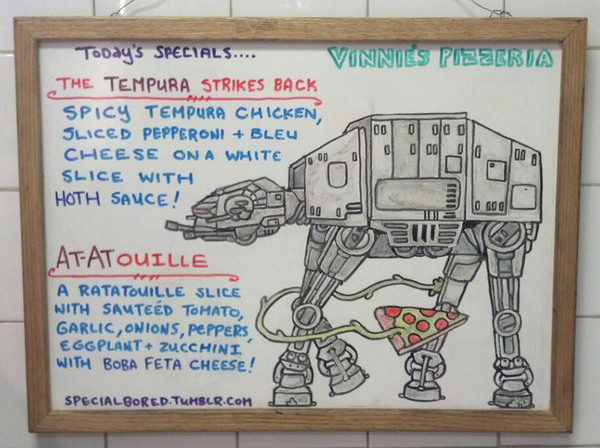 Today's Specials....
VINNIE'S PIZZERIA
THE TEMPURA STRIKES BACK
SPICY TEMPURA CHICKEN,
SLICED PEPPERONI + BLEU
CHEESE ON A WHITE
SLICE WITH
HOTH SAUCE!
AT-ATOUILLE
A RATATOUILLE SLICE
WITH SAUTEÉD TOMATO,
GARLIC, ONIONS, PEPPERS,
EGGPLANT + ZUCCHINI
WITH BOBA FETA CHEESE!
SPECIALBORED.TUMBLR.COM